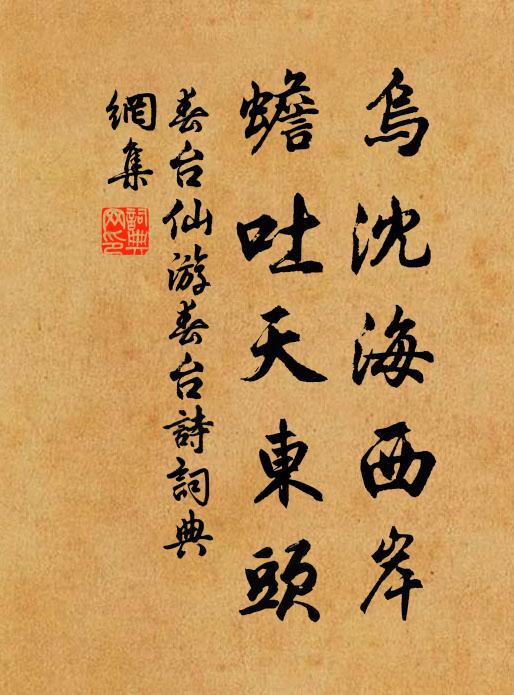 烏沈海西岸
蟾吐天東頭
春台仙游春台詩詞典
網集
詞典
网印